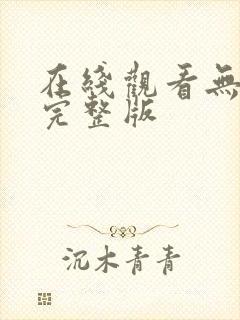 在綫觀看無
完整版
沉木青青